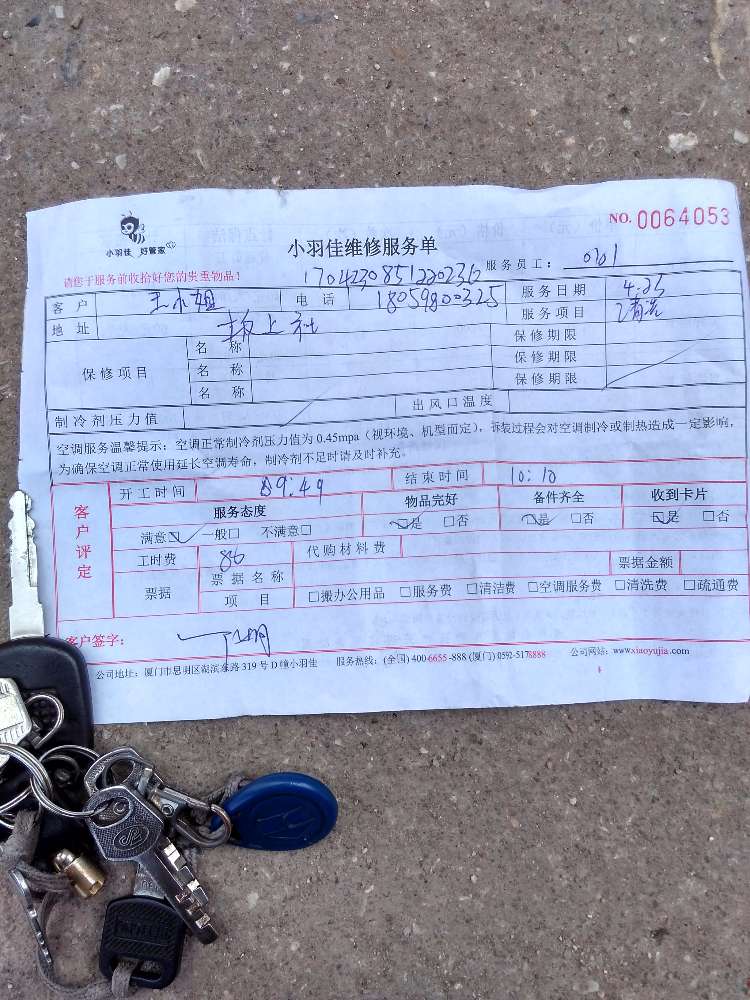 NO. 0064053
小羽佳 好管家
小羽佳维修服务单
请您于服务前收拾好您的贵重物品!
1704230851220236 服务员工: 0301
客户 王小姐 电话 18059800325 服务日期 4.25
地址 坂上社 服务项目 清洗
保修项目
名称 保修期限
名称 保修期限
名称 保修期限
制冷剂压力值 出风口温度
空调服务温馨提示:空调正常制冷剂压力值为0.45mpa(视环境、机型而定),拆装过程会对空调制冷或制热造成一定影响,
为确保空调正常使用延长空调寿命,制冷剂不足时请及时补充。
客户评定
开工时间 09:49 结束时间 10:10
服务态度 物品完好 备件齐全 收到卡片
满意☑ 一般□ 不满意□ ☑是 □否 ☑是 □否 ☑是 □否
工时费 80 代购材料费
票据 票据名称 票据金额
项目 □搬办公用品 □服务费 □清洁费 □空调服务费 □清洗费 □疏通费
客户签字:
公司地址:厦门市思明区湖滨东路319号D幢小羽佳 服务热线:(全国)400-6655-888 (厦门)0592-5178888 公司网站:www.xiaoyujia.com